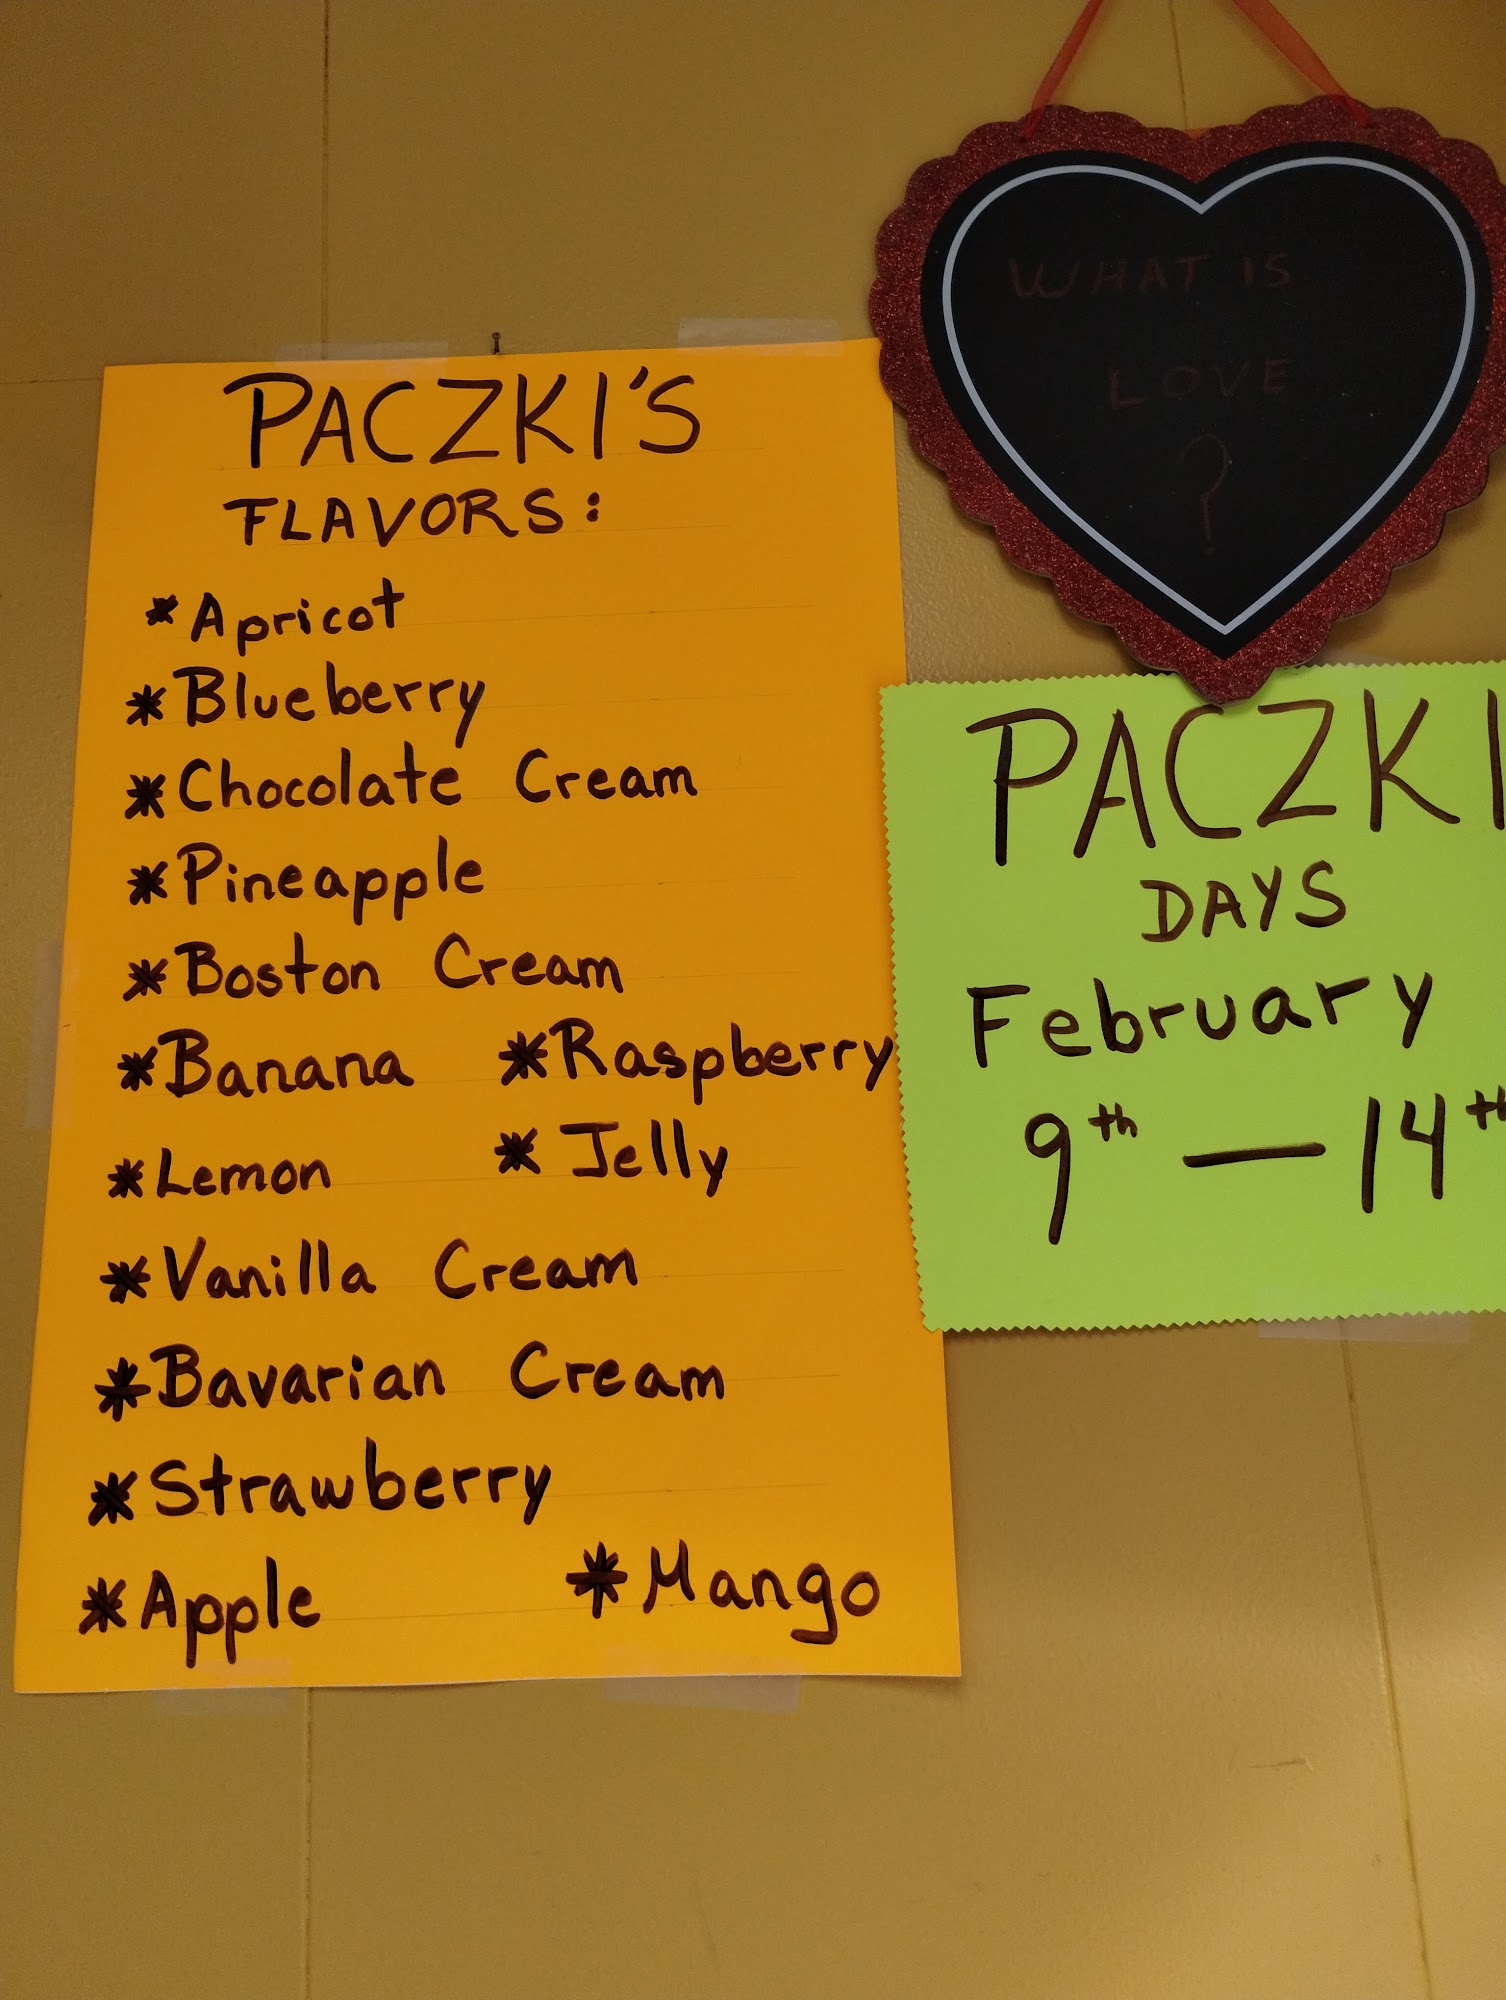 PACZKI'S
FLAVORS:
* Apricot
* Blueberry
* Chocolate Cream
* Pineapple
* Boston Cream
* Banana * Raspberry
* Lemon * Jelly
* Vanilla Cream
* Bavarian Cream
* Strawberry
* Apple * Mango
WHAT IS
LOVE
?
PACZKI
DAYS
February
9th — 14th